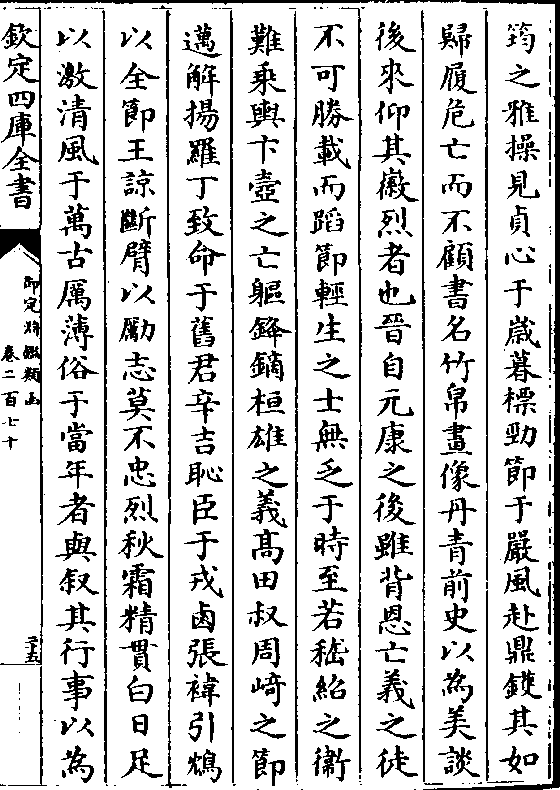 筠之雅操見貞心于嵗暮標勁節于嚴風赴鼎鑊其如
歸履危亡而不顧書名竹帛畫像丹青前史以為美談
後來仰其徽烈者也晉自元康之後雖背恩亡義之徒
不可勝載而蹈節輕生之士無乏于時至若嵇紹之衛
難乘輿卞壺之亡軀鋒鏑桓雄之義髙田叔周﨑之節
邁解揚羅丁致命于舊君辛吉恥臣于戎鹵張褘引鴆
以全節王諒斷臂以勵志莫不忠烈秋霜精貫白日足
以激清風于萬古厲薄俗于當年者與叙其行事以為
欽定四庫全書
御定淵鑑類函
卷二百七十
二十五